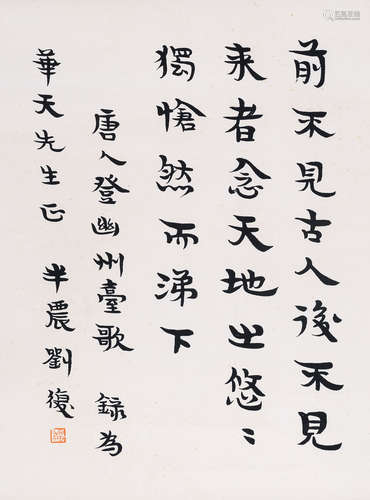 前不見古人後不見
来者念天地之悠〻
獨愴然而涕下
唐人登幽州臺歌 録為
華天先生正 半農劉復